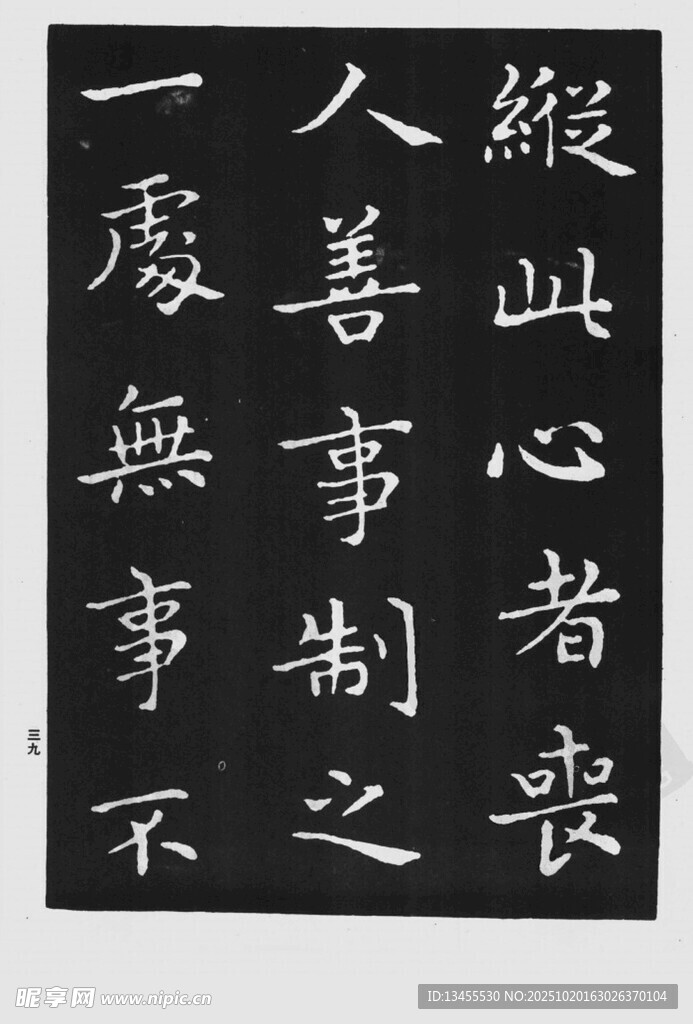 縱此心者喪
人善事制之
一處無事不
三九
昵享网 www.nipic.cn
ID:13455530 NO:20251020163026370104